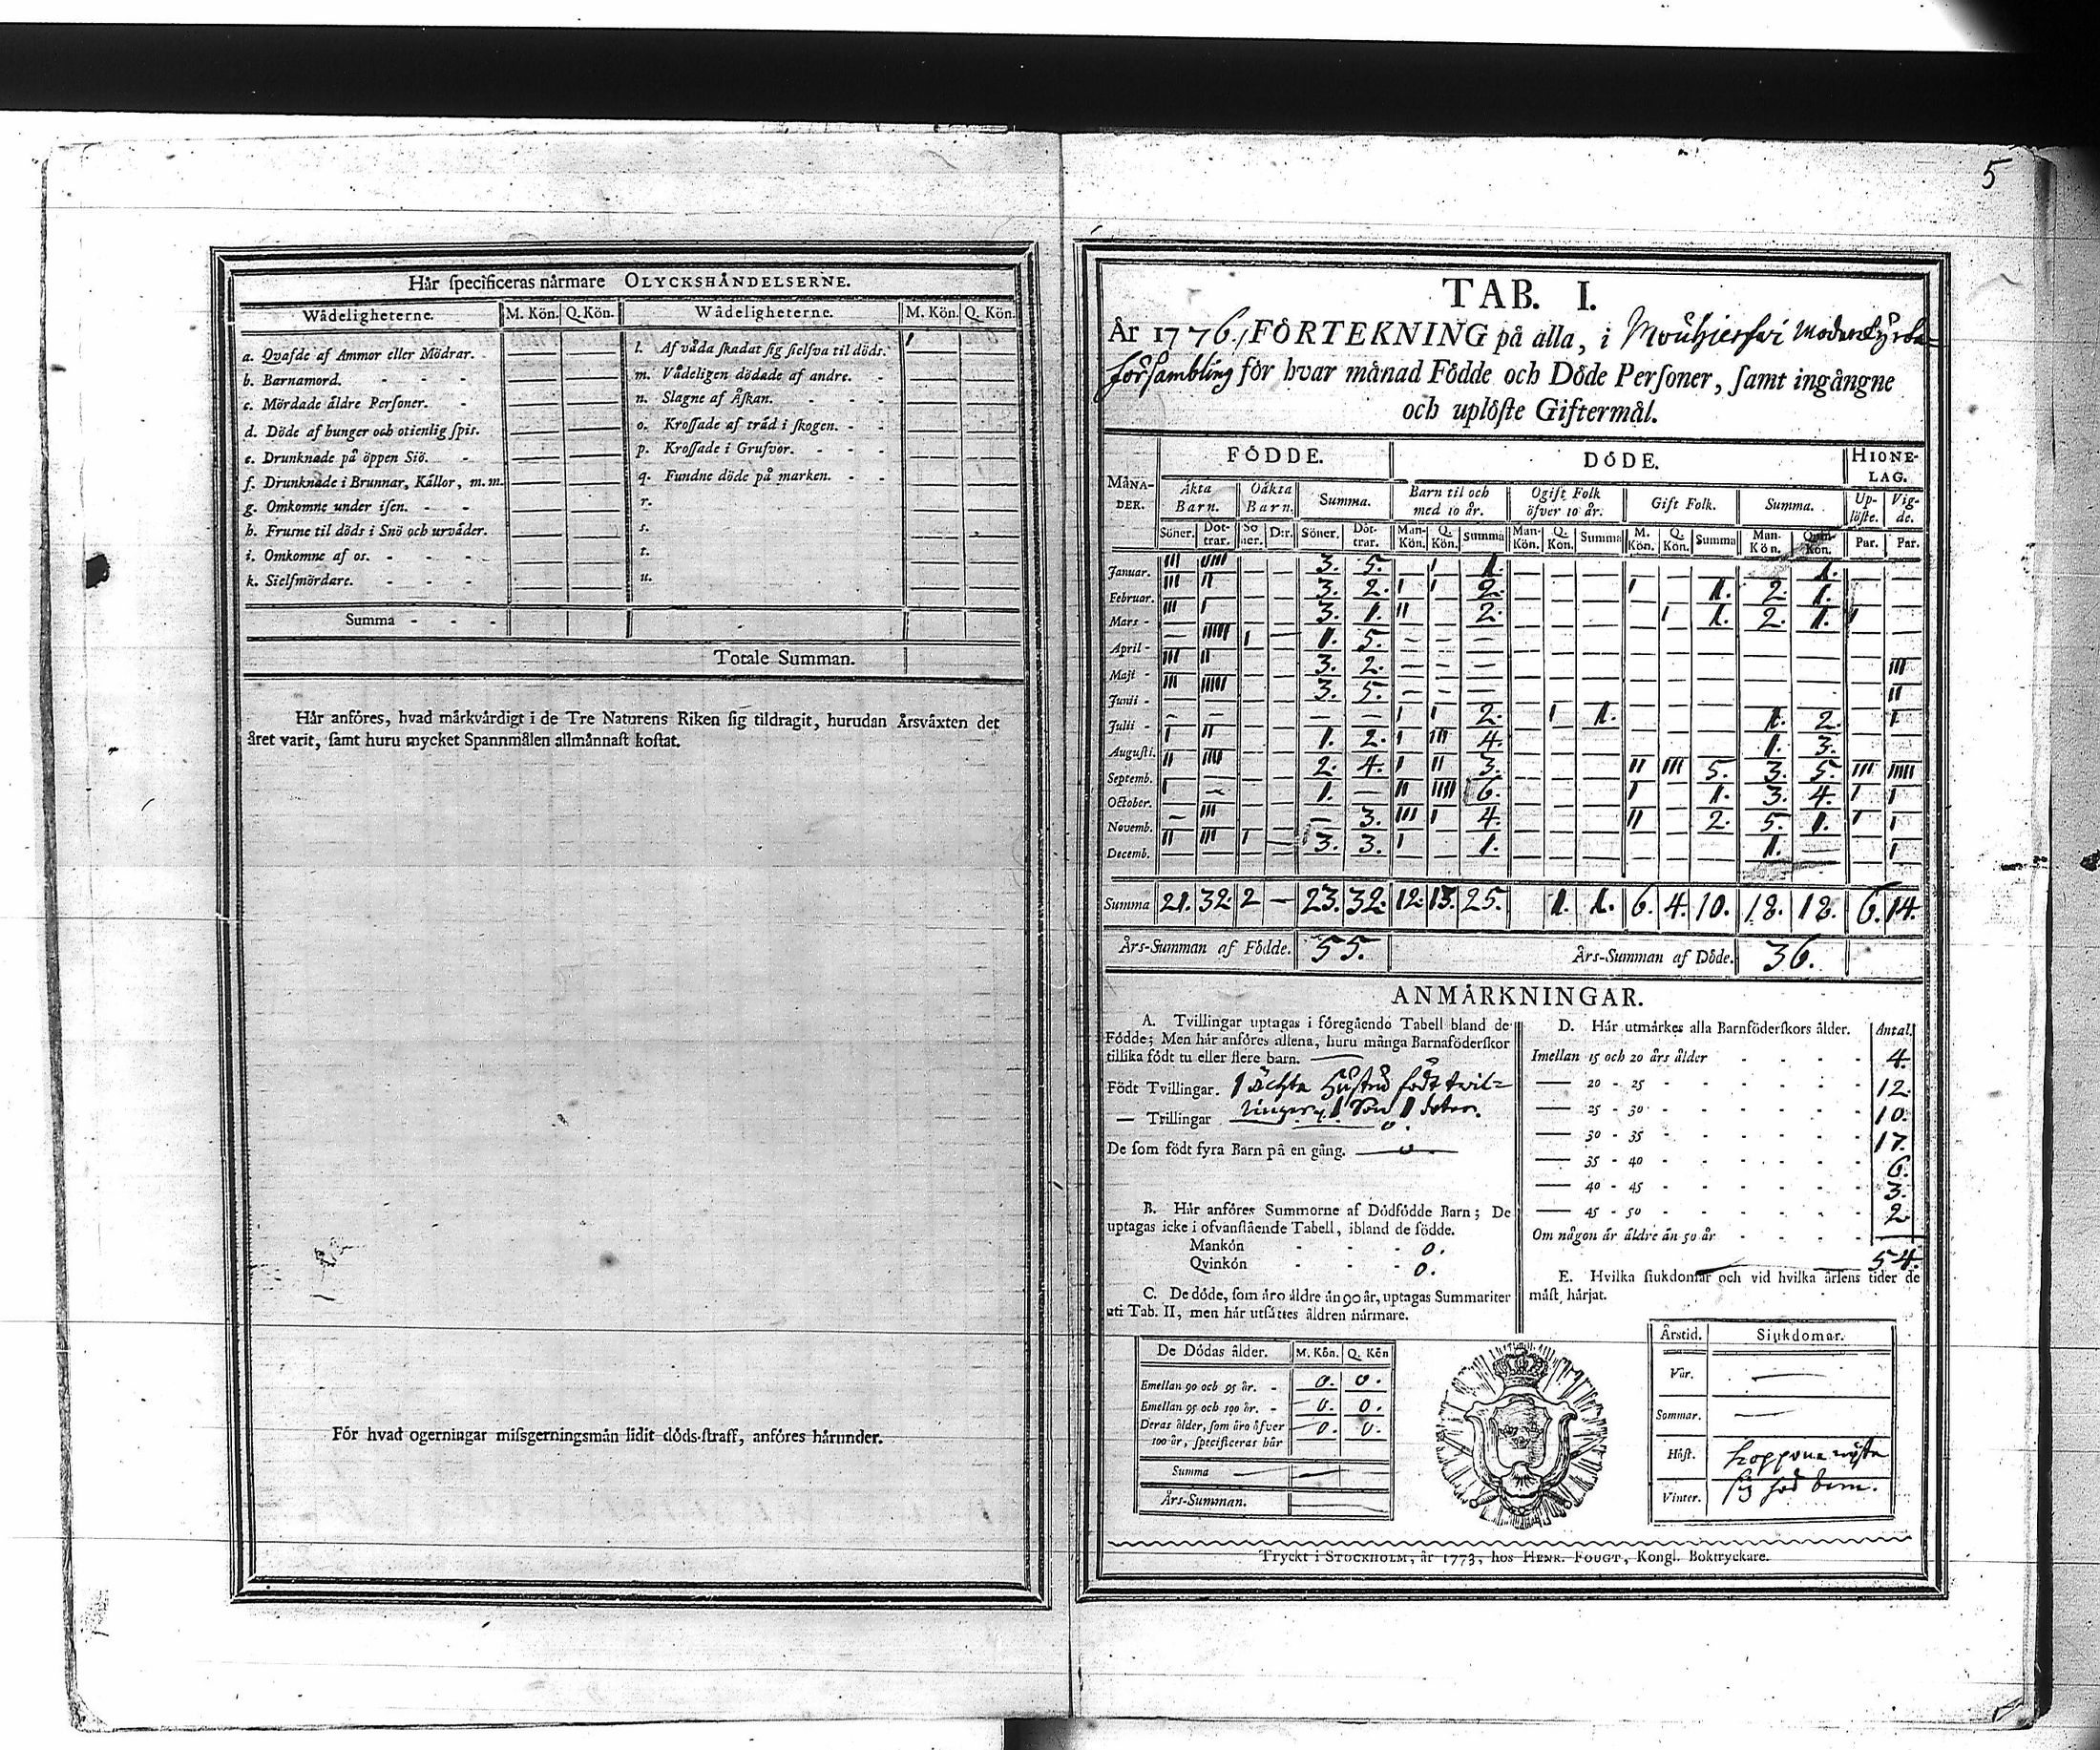 5
Hår ſpecificeras nårmare OLYCKSHÅNDELSERNE.
Wådeligheterne. M. Kön. Q. Kön. Wådeligheterne. M. Kön. Q. Kön.
a. Qvafde af Ammor eller Mödrar. — — l. Af våda ſkadat ſig ſielfva til döds. 1 —
b. Barnamord. — — m. Vådeligen dödade af andre. — —
c. Mördade åldre Perſoner. — — n. Slagne af Åſkan. — —
d. Döde af hunger och otienlig ſpis. — — o. Kroſſade af tråd i ſkogen. — —
e. Drunknade på öppen Siö. — — p. Kroſſade i Grufvor. — —
f. Drunknade i Brunnar, Kållor, m. m. — — q. Fundne döde på marken. — —
g. Omkomne under iſen. — — r. — —
h. Fruſne til döds i Snö och urvåder. — — s. — —
i. Omkomne af os. — — t. — —
k. Sielfmördare. — — u. — —
Summa - - -
Totale Summan.
Hår anföres, hvad mårkvårdigt i de Tre Naturens Riken ſig tildragit, hurudan Årsvåxten det
året varit, ſamt huru mycket Spannmålen allmånnaſt koſtat.
För hvad ogerningar miſsgerningsmån lidit döds-ſtraff, anföres hårunder.
TAB. I.
År 1776. FÖRTEKNING på alla, i Mouhierfwi Moderkyrko=
förſambling för hvar månad Födde och Döde Perſoner, ſamt ingångne
och uplöſte Giftermål.
MÅNA-DER. FÖDDE. DÖDE. HIONE-LAG.
Åkta Barn. Oåkta Barn. Summa. Barn til och med 10 år. Ogift Folk öfver 10 år. Gift Folk. Summa. Up-löſte. Vig-de.
Söner. Dot-trar. So ner. D:r. Söner. Dot-trar. Man-Kön. Q. Kön. Summa Man-Kön. Q. Kön. Summa M. Kön. Q. Kön. Summa Man-Kön. Qvin-Kön. Par. Par.
Januar. III IIIII — — 3. 5. — I 1. — — — — — — — 1. — —
Februar. III II — — 3. 2. I I 2. — — — I — 1. 2. 1. — —
Mars - III I — — 3. 1. II — 2. — — — — I 1. 2. 1. I —
April - — IIIII I — 1. 5. — — — — — — — — — — — — —
Maji - III II — — 3. 2. — — — — — — — — — — — — III
Junii - III IIIII — — 3. 5. — — — — — — — — — — — — II
Julii - — — — — — — I I 2. — I 1. — — — 1. 2. — I
Auguſti. I II — — 1. 2. I III 4. — — — — — — 1. 3. — —
Septemb. II IIII — — 2. 4. I II 3. — — — II III 5. 3. 5. III IIIII
October. I — — — 1. — II IIII 6. — — — I — 1. 3. 4. I I
Novemb. — III — — — 3. III I 4. — — — II — 2. 5. 1. I I
Decemb. II III I — 3. 3. I — 1. — — — — — — 1. — — I
Summa 21. 32. 2 — 23. 32. 12. 13. 25. 1. 1. 6. 4. 10. 18. 18. 6. 14.
Års-Summan af Födde. 55. Års-Summan af Döde. 36.
ANMÅRKNINGAR.
A. Tvillingar uptagas i föregående Tabell bland de
Födde; Men hår anföres allena, huru många Barnaföderſkor
tillika födt tu eller flere barn.
Födt Tvillingar. 1 ächta hustru födt twil=
lingar, 1 Son 1 doter.
— Trillingar 0.
De ſom födt fyra Barn på en gång. — 0. —
B. Hår anföres Summorne af Dödfödde Barn; De
uptagas icke i ofvanſtående Tabell, ibland de födde.
Mankön - - - 0.
Qvinkön - - - 0.
C. De döde, ſom åro åldre ån 90 år, uptagas Summariter
uti Tab. II, men hår utſåttes åldren nårmare.
De Dödas ålder. M. Kön. Q. Kön
Emellan 90 och 95 år. - 0. 0.
Emellan 95 och 100 år. - 0. 0.
Deras ålder, ſom åro öfver
100 år, ſpecificeras hår 0. 0.
Summa
Års-Summan.
D. Hår utmårkes alla Barnföderſkors ålder. Antal.
Imellan 15 och 20 års ålder 4.
— 20 - 25 12.
— 25 - 30 10.
— 30 - 35 17.
— 35 - 40 6.
— 40 - 45 3.
— 45 - 50 2
Om någon år åldre ån 50 år —
54.
E. Hvilka ſiukdomar och vid hvilka årſens tider de
måſt hårjat.
Årstid. Siukdomar.
Vår. —
Sommar. —
Höſt. koppone wiſte
Vinter. ſig hos dem.
Tryckt i STOCKHOLM, år 1773, hos HENR. FOUGT, Kongl. Boktryckare.